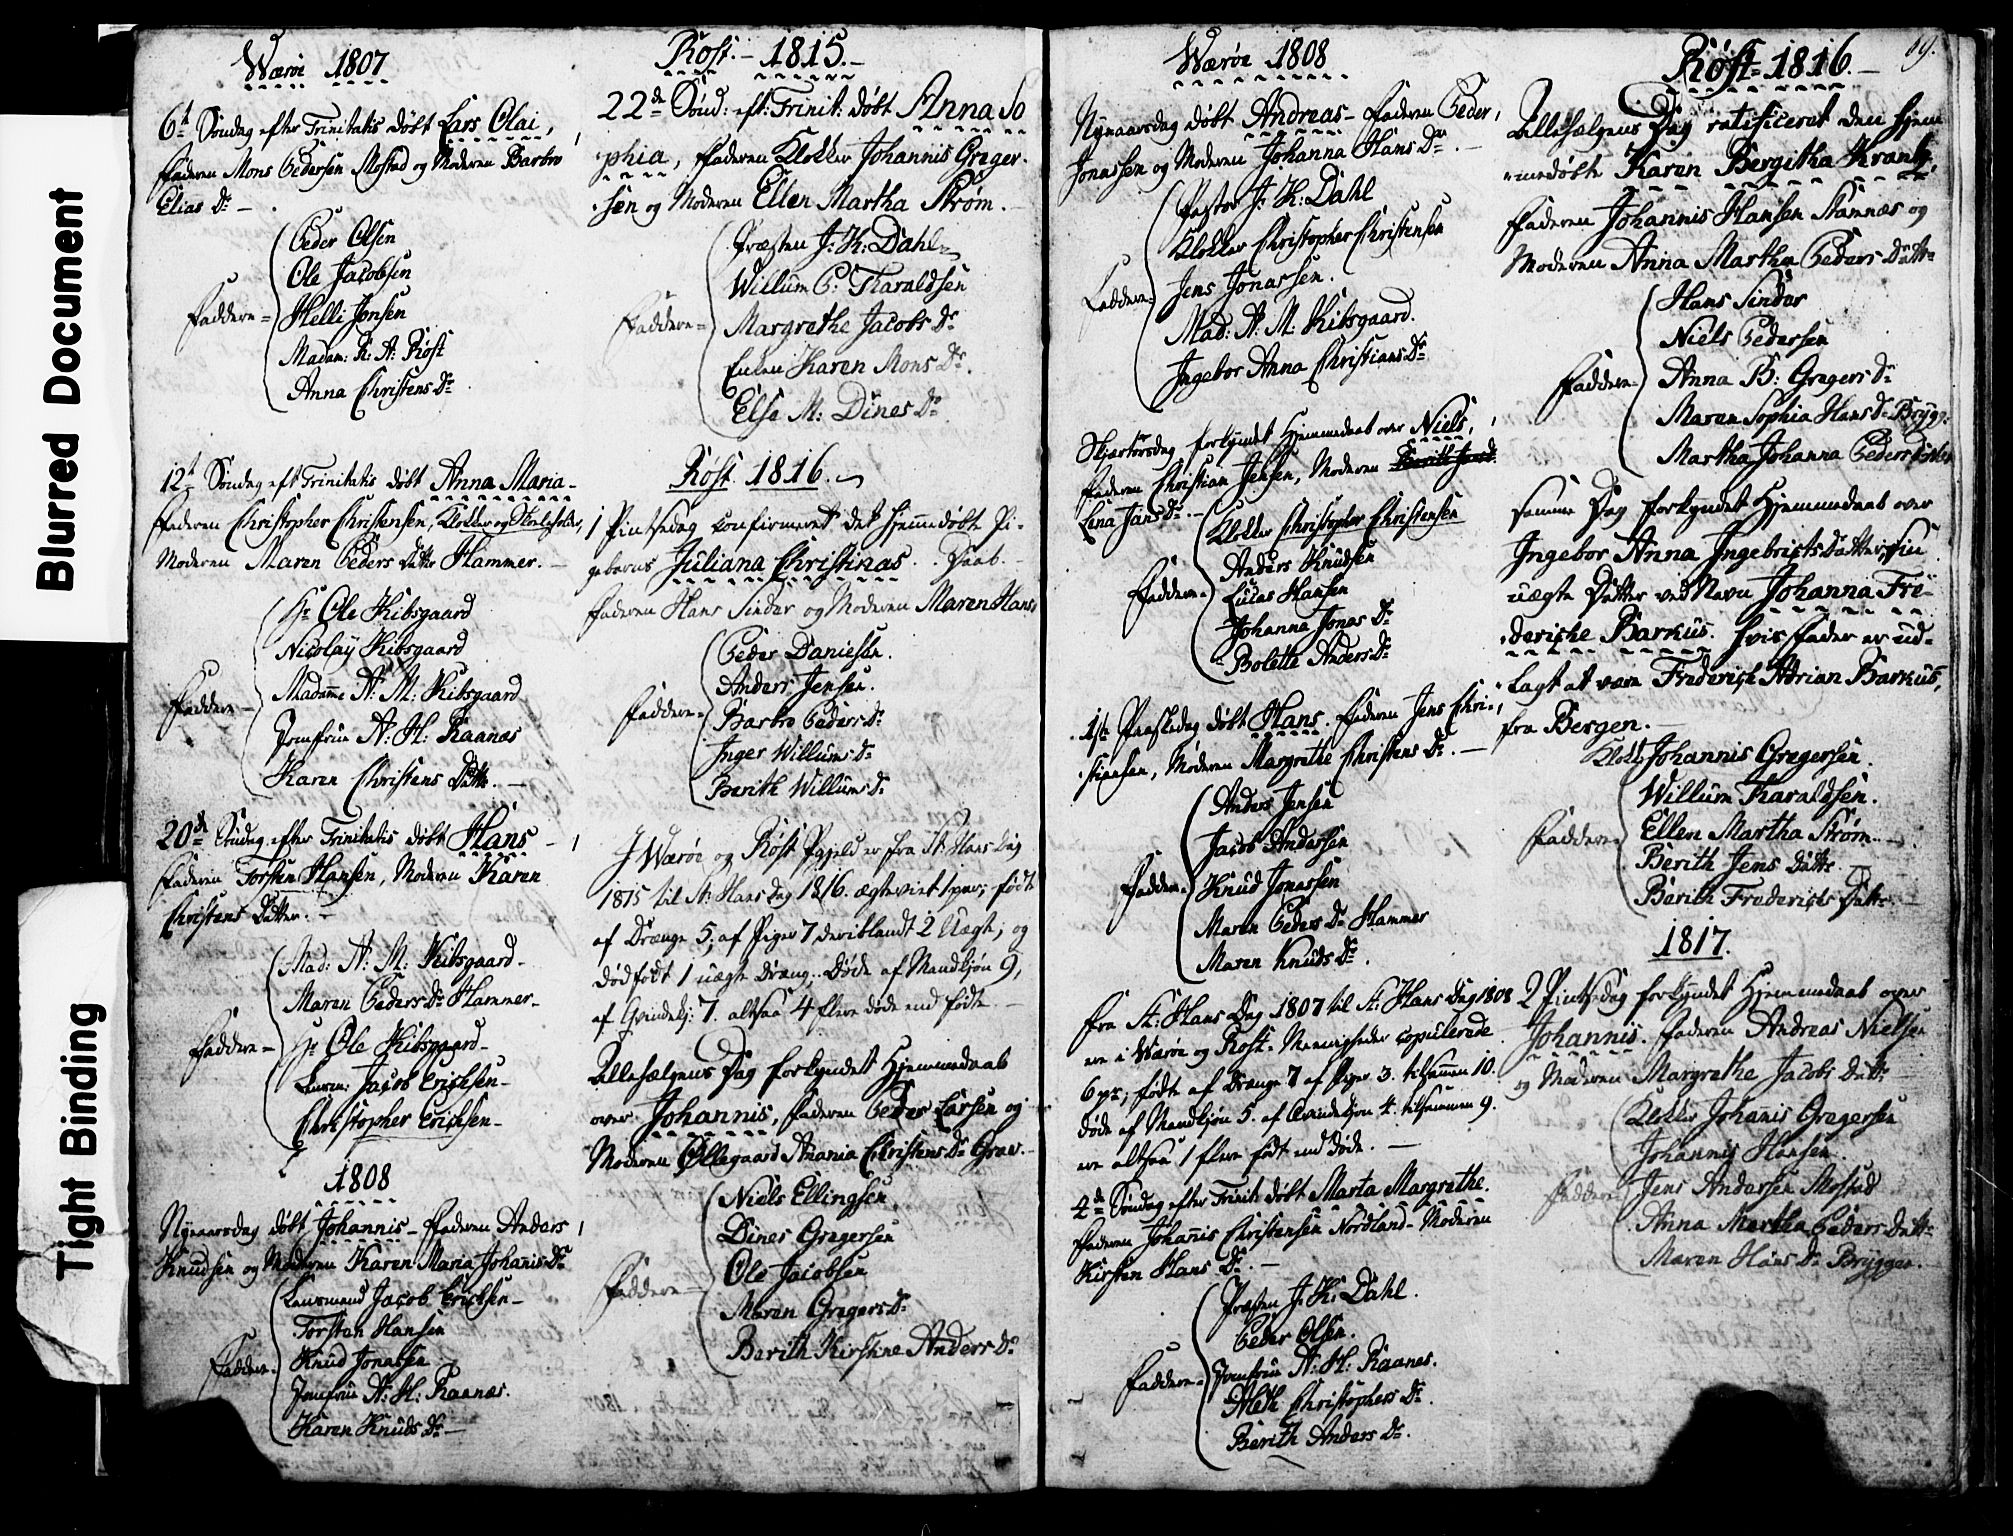 Blurred Document
Tight Binding
Værøe 1807
6t Söndag efter Trinitatis döbt Lars Olai,
Faderen Mons Pedersen Mostad og Moderen Barbro
Elias Dr
Peder Olsen
Ole Jacobsen
Faddere = Helli Jonsen
Madam: K: A: Röst
Anna Christens Dr
12t Söndag eft Trinitatis döbt Anna Maria
Faderen Christopher Christensen, Klokker og
Moderen Maren Peders Datter Hammer.
Hr Ole Kibsgaard
Nicolay Kibsgaard
Faddere Madame A: M: Kibsgaard
Jomfrue A: H: Raanæs
Karen Christens Dattr.
20de Söndag efter Trinitatis döbt Hans
Faderen Torsten Hansen, Moderen Karen
Christens Datter.
Mad: A: M: Kibsgaard
Maren Peders Dr Hammer
Faddere Hr Ole Kibsgaard
Lensm: Jacob Erichsen
Christopher Erichsen
1808
Nyeaarsdag döbt Johannis Faderen Anders
Knudsen og Moderen Karen Maria Johanis Dr
Lensmand Jacob Erichsen
Torsten Hansen
Faddere Knud Jonassen
Jomfrue A: H: Raanæs.
Karen Knuds Dr
Röst. 1815.
22de Sönd: eft: Trinit: döbt Anna So
phia, Faderen Klokker Johannis Greger-
sen og Moderen Ellen Martha Ström.
Præsten J: K: Dahl
Willum P: Tharaldsen
Faddere = Margrethe Jacobs Dr
Enken Karen Mons Dr.
Else M: Dines Dr
Röst. 1816.
1 Pintsedag confirmeret det hjemmedöbte Pi-
gebarns Juliana Christinas Daab.
Faderen Hans Sindar og Moderen Maren Hans
Peder Danielsen.
Anders Jensen.
Faddere Barbro Peders Dr
Inger Willums Dr
Berith Willums Dr
I Værøe og Röst Pgjeld er fra St Hans Dag
1815 til St: Hans Dag 1816. ægteviet 1 par; födte
af Drænge 5; af Piger 7 deriblandt 2 Uægte; og
dödfödt 1 uægte Dræng; Döde af Mandkjön 9,
af Qvindekj: 7. altsaa 4 flere döde end födte.
Allehælgens Dag forkyndet Hjemmedaab
over Johannis, Faderen Peder Larsen og
Moderen Øllegaard Anania Christens Dr Grav.
Niels Ellingsen
Dines Gregersen
Faddere Ole Jacobsen
Maren Gregers Dr
Berith Kirstine Anders Dr
Værøe 1808
Nyeaarsdag döbt Andreas Faderen Peder
Jonassen og Moderen Johanna Hans Dr.
Pastor J: K: Dahl
Klokker Christopher Christensen
Faddere Jens Jonassen.
Mad: A: M: Kibsgaard.
Ingebor Anna Christians Dr
Skjærtorsdag forkyndet Hjemmedaab over Niels,
Faderen Christian Jensen, Moderen
Lena Jans Dr.
Klokker Christopher Christensen
Anders Knudsen
Faddere Lucas Hansen
Johanna Jonas Dr
Bolette Anders Dr
1ste Paaskedag döbt Hans. Faderen Jens Chri-
stiansen, Moderen Margrethe Christens Dr.
Anders Jensen
Jacob Andersen
Faddere Knud Jonassen
Maren Peders Dr Hammer
Maren Knuds Dr.
Fra St: Hans Dag 1807 til St: Hans Dag 1808
ere i Værøe og Röst Menigheder copulerede
6 pr, födte af Drænge 7 af Piger 3. tilsammen 10.
döde af Mandkjön 5. af Qvindekjön 4. tilsammen 9.
ere altsaa 1 flere födt end döde.
4de Söndag efter Trinit döbt Marta Margrethe.
Faderen Johannis Christensen Nordland Moderen
Kirsten Hans Dr.
Præsten J: K: Dahl.
Peder Olsen.
Faddere Jomfrue A: H: Raanes.
Aleth Christophers Dr.
Berith Anders Dr.
69.
Röst 1816.
Allehælgens Dag ratificeret den hjem
medöbte Karen Bergitha Krantz,
Faderen Johannis Hansen Stamnæs og
Moderen Anna Martha Peders Datter
Hans Sindar
Niels Pedersen
Faddere Anna B: Gregers Dr
Maren Sophia Hans Dr Brygg.
Martha Johanna Peders Datter
Samme Dag forkyndet Hjemmedaab over
Ingebor Anna Ingebrigts Datters fin
uægte Datter ved Navn Johanna Fre-
deriche Barkus. hvis Fader er ud-
lagt at være Friderich Adrian Barkus,
fra Bergen.
Klokk Johannis Gregersen.
Willum Taraldsen.
Faddere Ellen Martha Ström
Berith Jens Dattr.
Berith Frederichs Dattr.
1817.
2 Pintsedag forkyndet Hjemmedaab over
Johannis. Faderen Andreas Nielsen
og Moderen Margrethe Jacobs Dattr
Klokker Johanis Gregersen
Johannis Hansen.
Faddere Jens Andersen Mostad
Anna Martha Peders Dattr
Maren Hans Dr Bryggen.